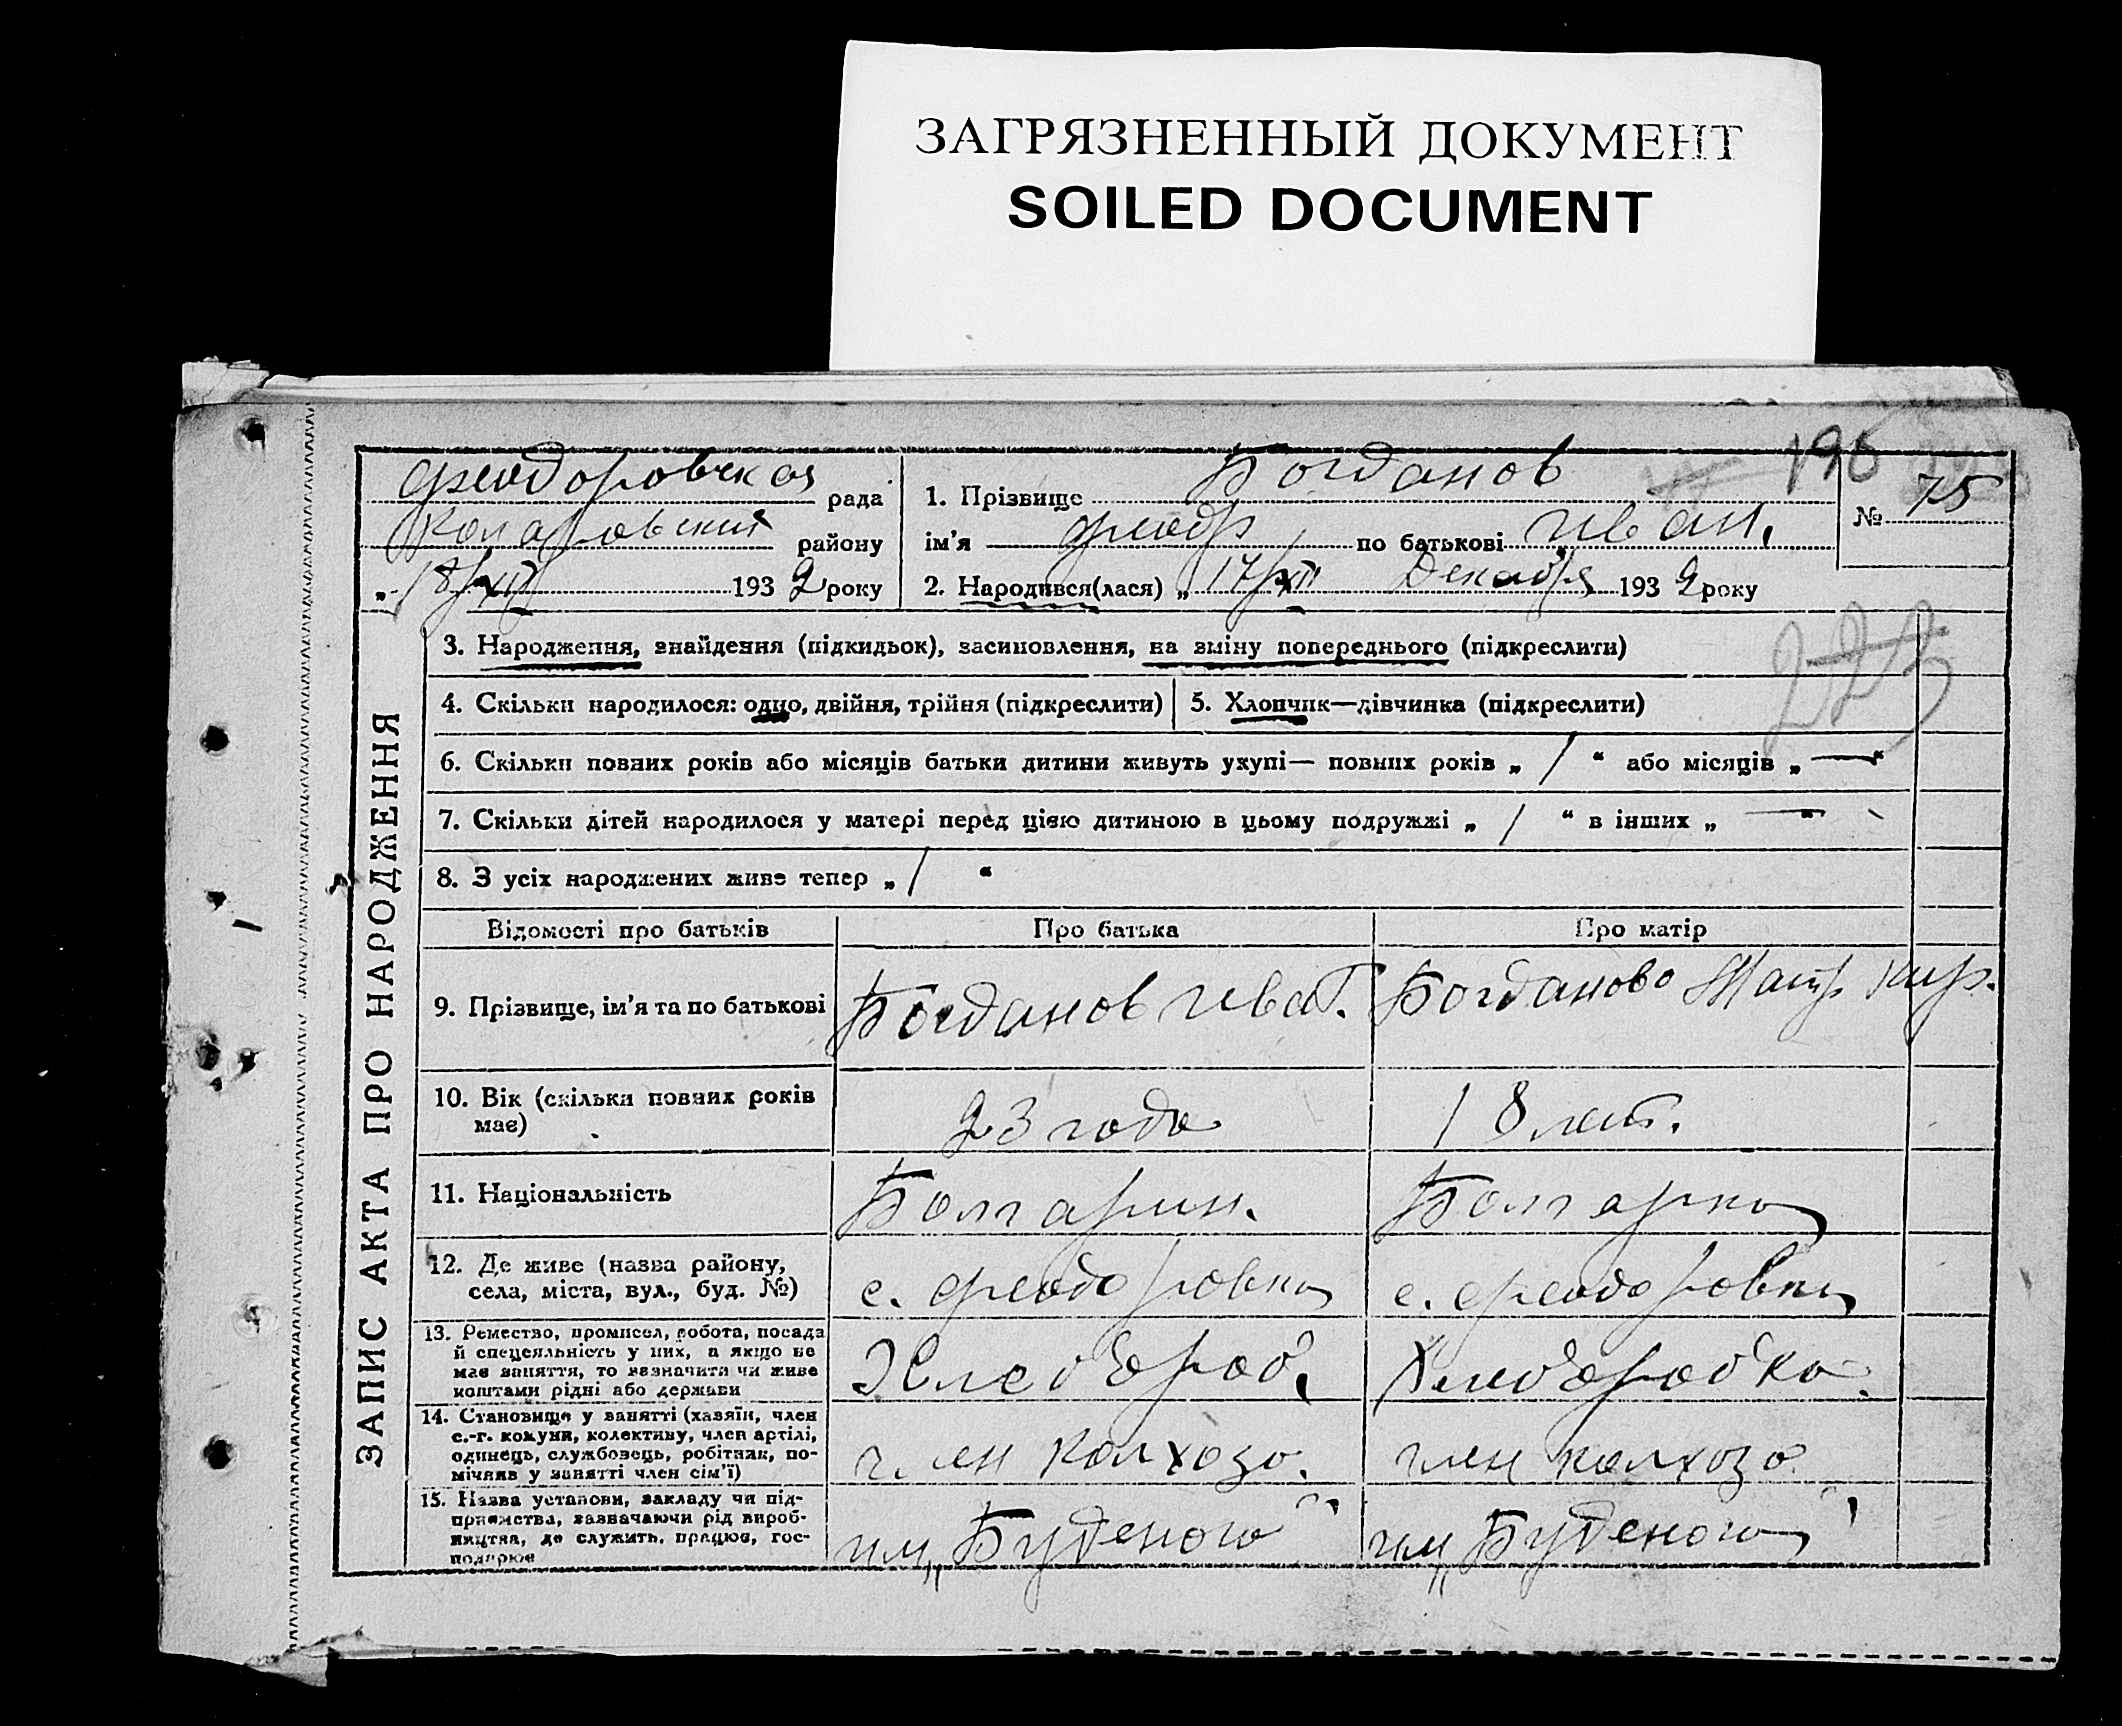 ЗАГРЯЗНЕННЫЙ ДОКУМЕНТ
SOILED DOCUMENT
196
Феодоровская рада
Коларовский району
„18/XII 1932 року
1. Прізвище Богданов
ім'я Феодр по батькові Иван.
2. Народився(лася) „17/XII Декабря 1932 року
№ 75
ЗАПИС АКТА ПРО НАРОДЖЕННЯ
3. Народження, знайдення (підкидьок), засиновлення, на зміну попереднього (підкреслити)
4. Скільки народилося: одно, двійня, трійня (підкреслити)
5. Хлопчик—дівчинка (підкреслити)
6. Скільки повних років або місяців батьки дитини живуть укупі— повних років „ 1 “ або місяців „ — “
7. Скільки дітей народилося у матері перед цією дитиною в цьому подружжі „ 1 “ в інших „ — “
8. З усіх народжених живе тепер „ 1 “
Відомості про батьків
Про батька
Про матір
9. Прізвище, ім'я та по батькові
Богданов Ива Г.
Богданова Кир.
10. Вік (скільки повних років
має)
23 года
18 лет.
11. Національність
Болгарин.
Болгарка
12. Де живе (назва району,
села, міста, вул., буд. №)
с. Феодоровка
с. Феодоровка
13. Ремество, промисел, робота, посада
й спецеяльність у них, а якщо не
має заняття, то зазначити чи живе
коштами рідні або держави
Хлебороб,
Хлеборобка.
14. Становище у занятті (хазяїн, член
с.-г. комуни, колективу, член артілі,
одинець, службовець, робітник, по-
мічняв у занятті член сім'ї)
член колхоза.
член колхоза
15. Назва установи, закладу чи під-
приємства, зазначаючи рід вироб-
ництва, де служить, працює, гос-
подарює
им „Буденого“
им „Буденого“